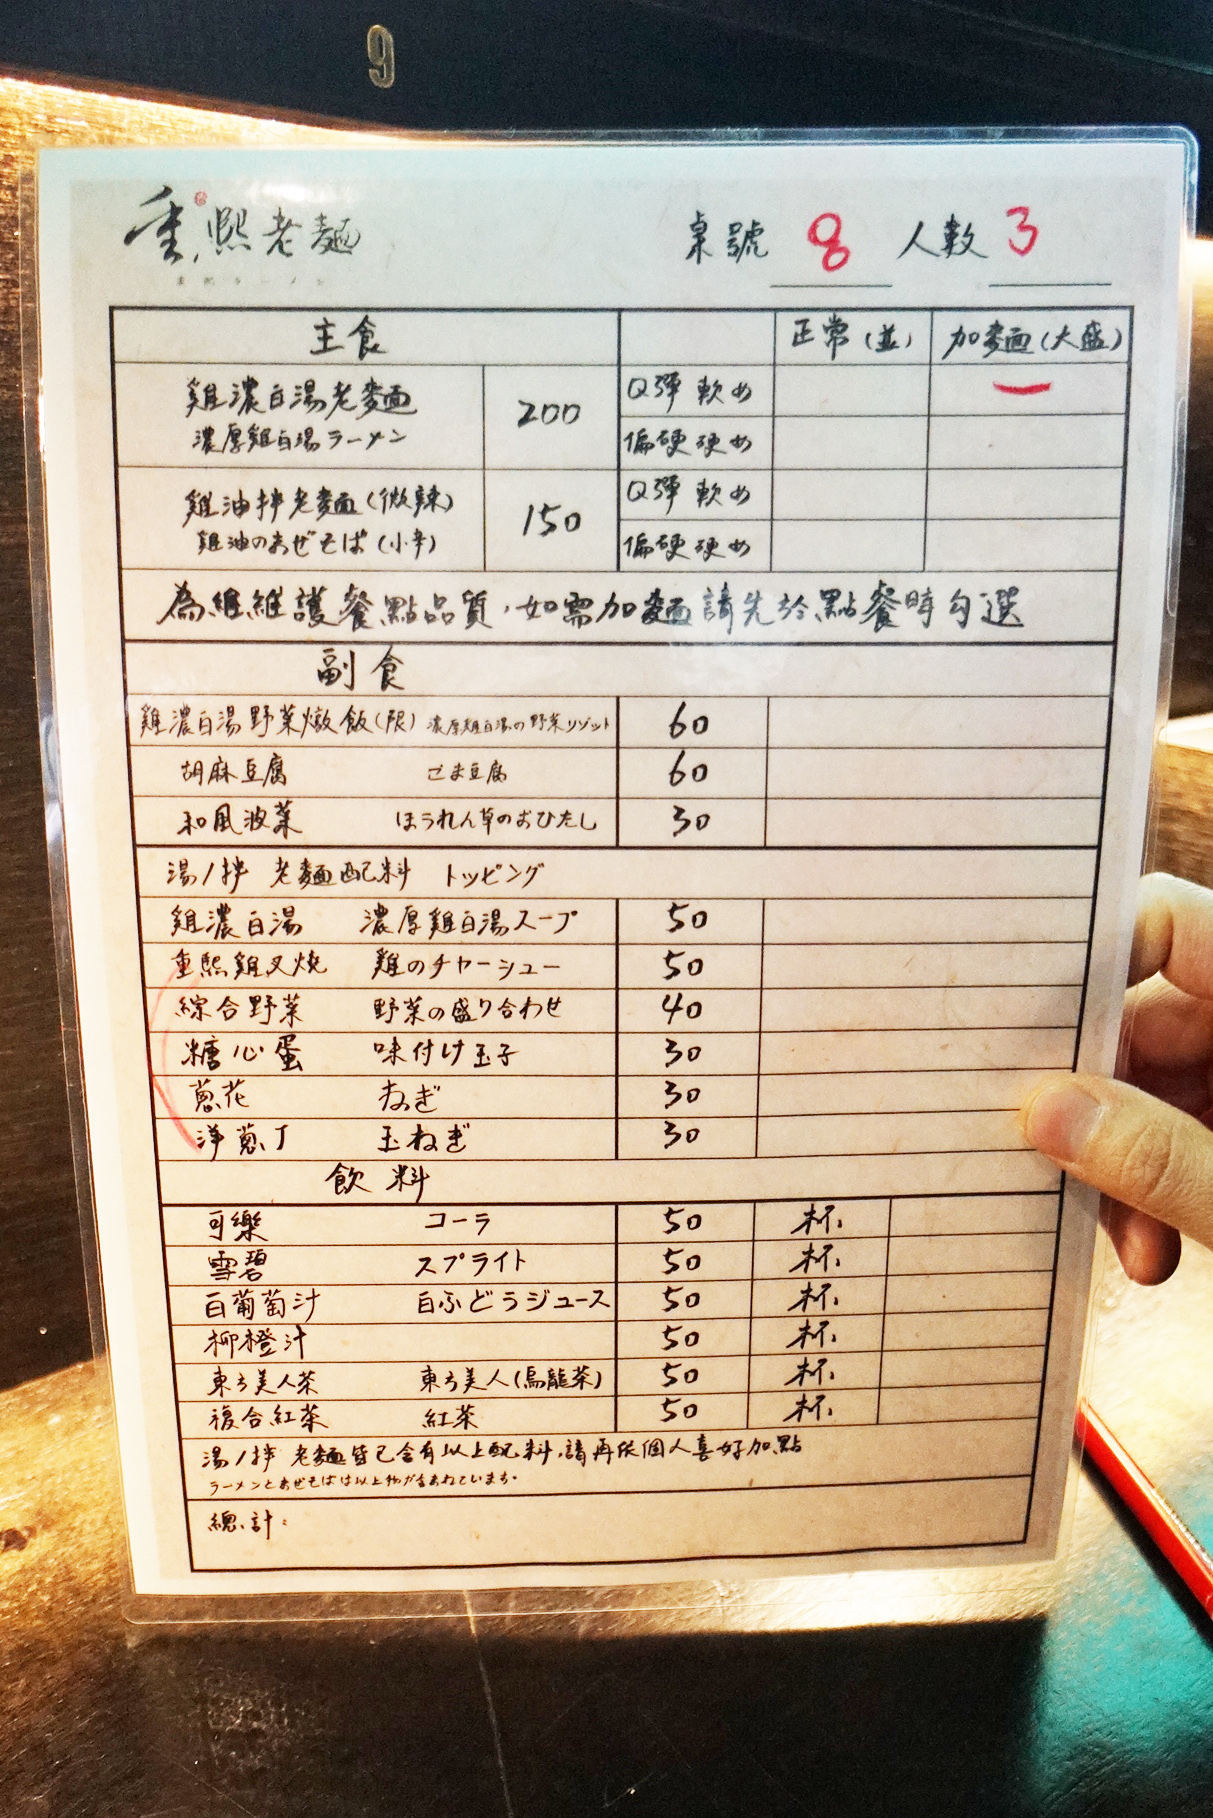 9
重熙老麵
桌號 8 人數 3
主食 正常(並) 加麵(大盛)
雞濃白湯老麵 200 Q彈 軟め 一
濃厚雞白湯ラーメン 偏硬 硬め
雞油拌老麵(微辣) 150 Q彈 軟め
雞油のあぜそば(小辛) 偏硬 硬め
為維維護餐點品質,如需加麵請先於點餐時勾選
副食
雞濃白湯野菜燉飯(限) 濃厚雞白湯の野菜リゾット 60
胡麻豆腐 ごま豆腐 60
和風波菜 ほうれん草のおひたし 30
湯/拌 老麵配料 トッピング
雞濃白湯 濃厚雞白湯スープ 50
重熙雞叉燒 雞のチャーシュー 50
綜合野菜 野菜の盛り合わせ 40
糖心蛋 味付け玉子 30
蔥花 ねぎ 30
洋蔥丁 玉ねぎ 30
飲料
可樂 コーラ 50 杯
雪碧 スプライト 50 杯
白葡萄汁 白ぶどうジュース 50 杯
柳橙汁 50 杯
東方美人茶 東方美人(烏龍茶) 50 杯
複合紅茶 紅茶 50 杯
湯/拌 老麵皆已含有以上配料,請再依個人喜好加點
ラーメンとあぜそばは以上物が含まれています。
總計: